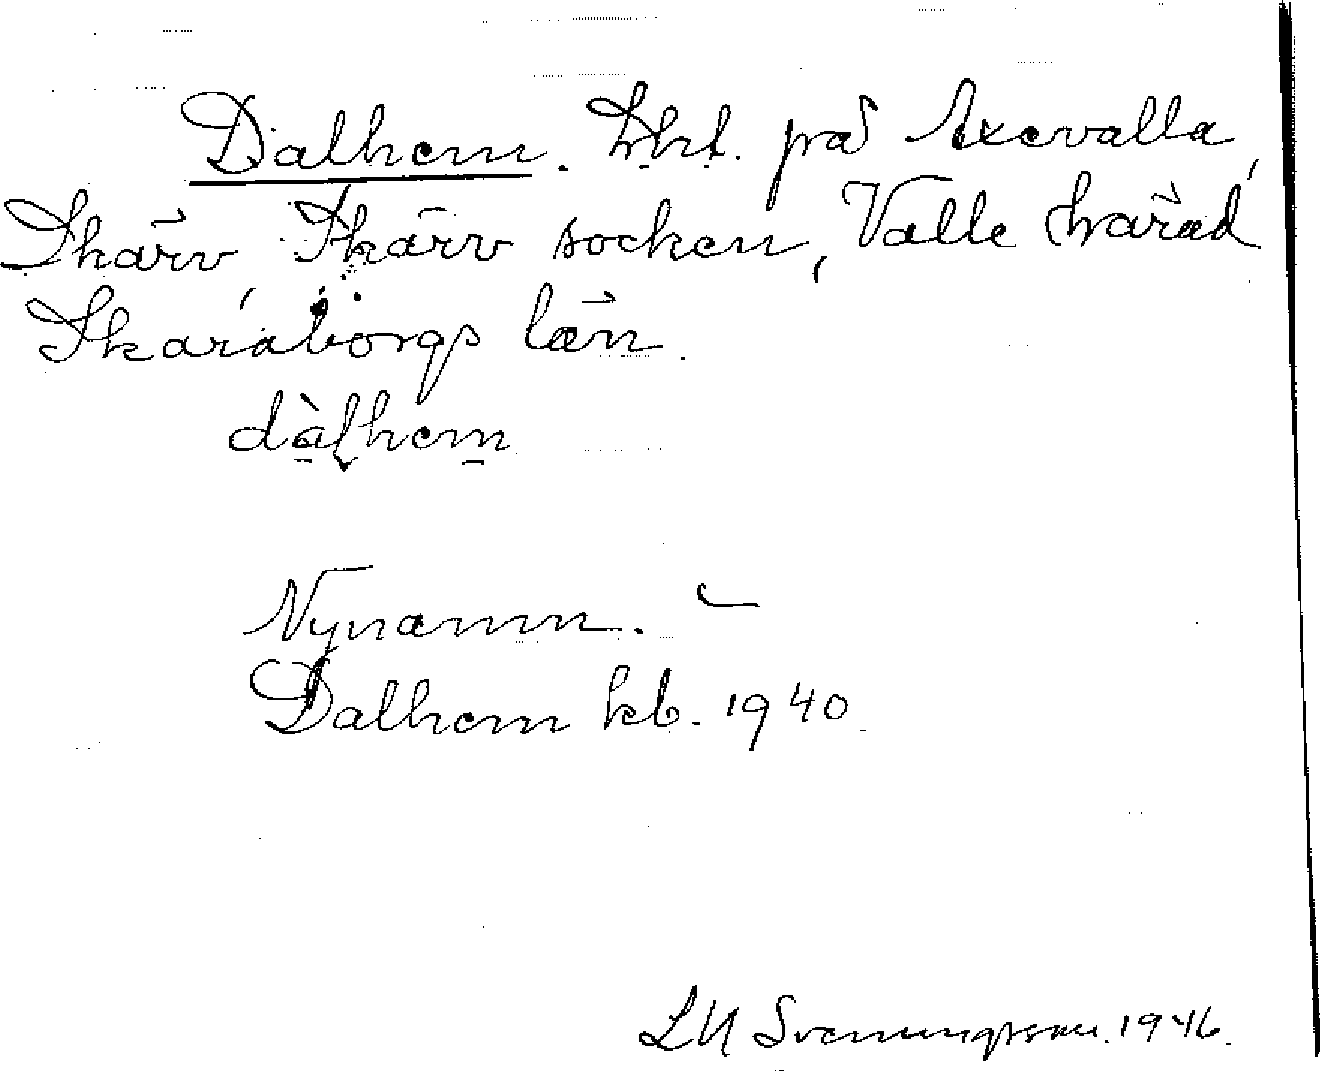 Dalhem. Lht. på Axevalla,
Skärv, Skärv socken, Valle härad
Skaraborgs län.
dàlhem
Nynamn. –
Dalhem kb. 1940
LN Svenungsson. 1946.